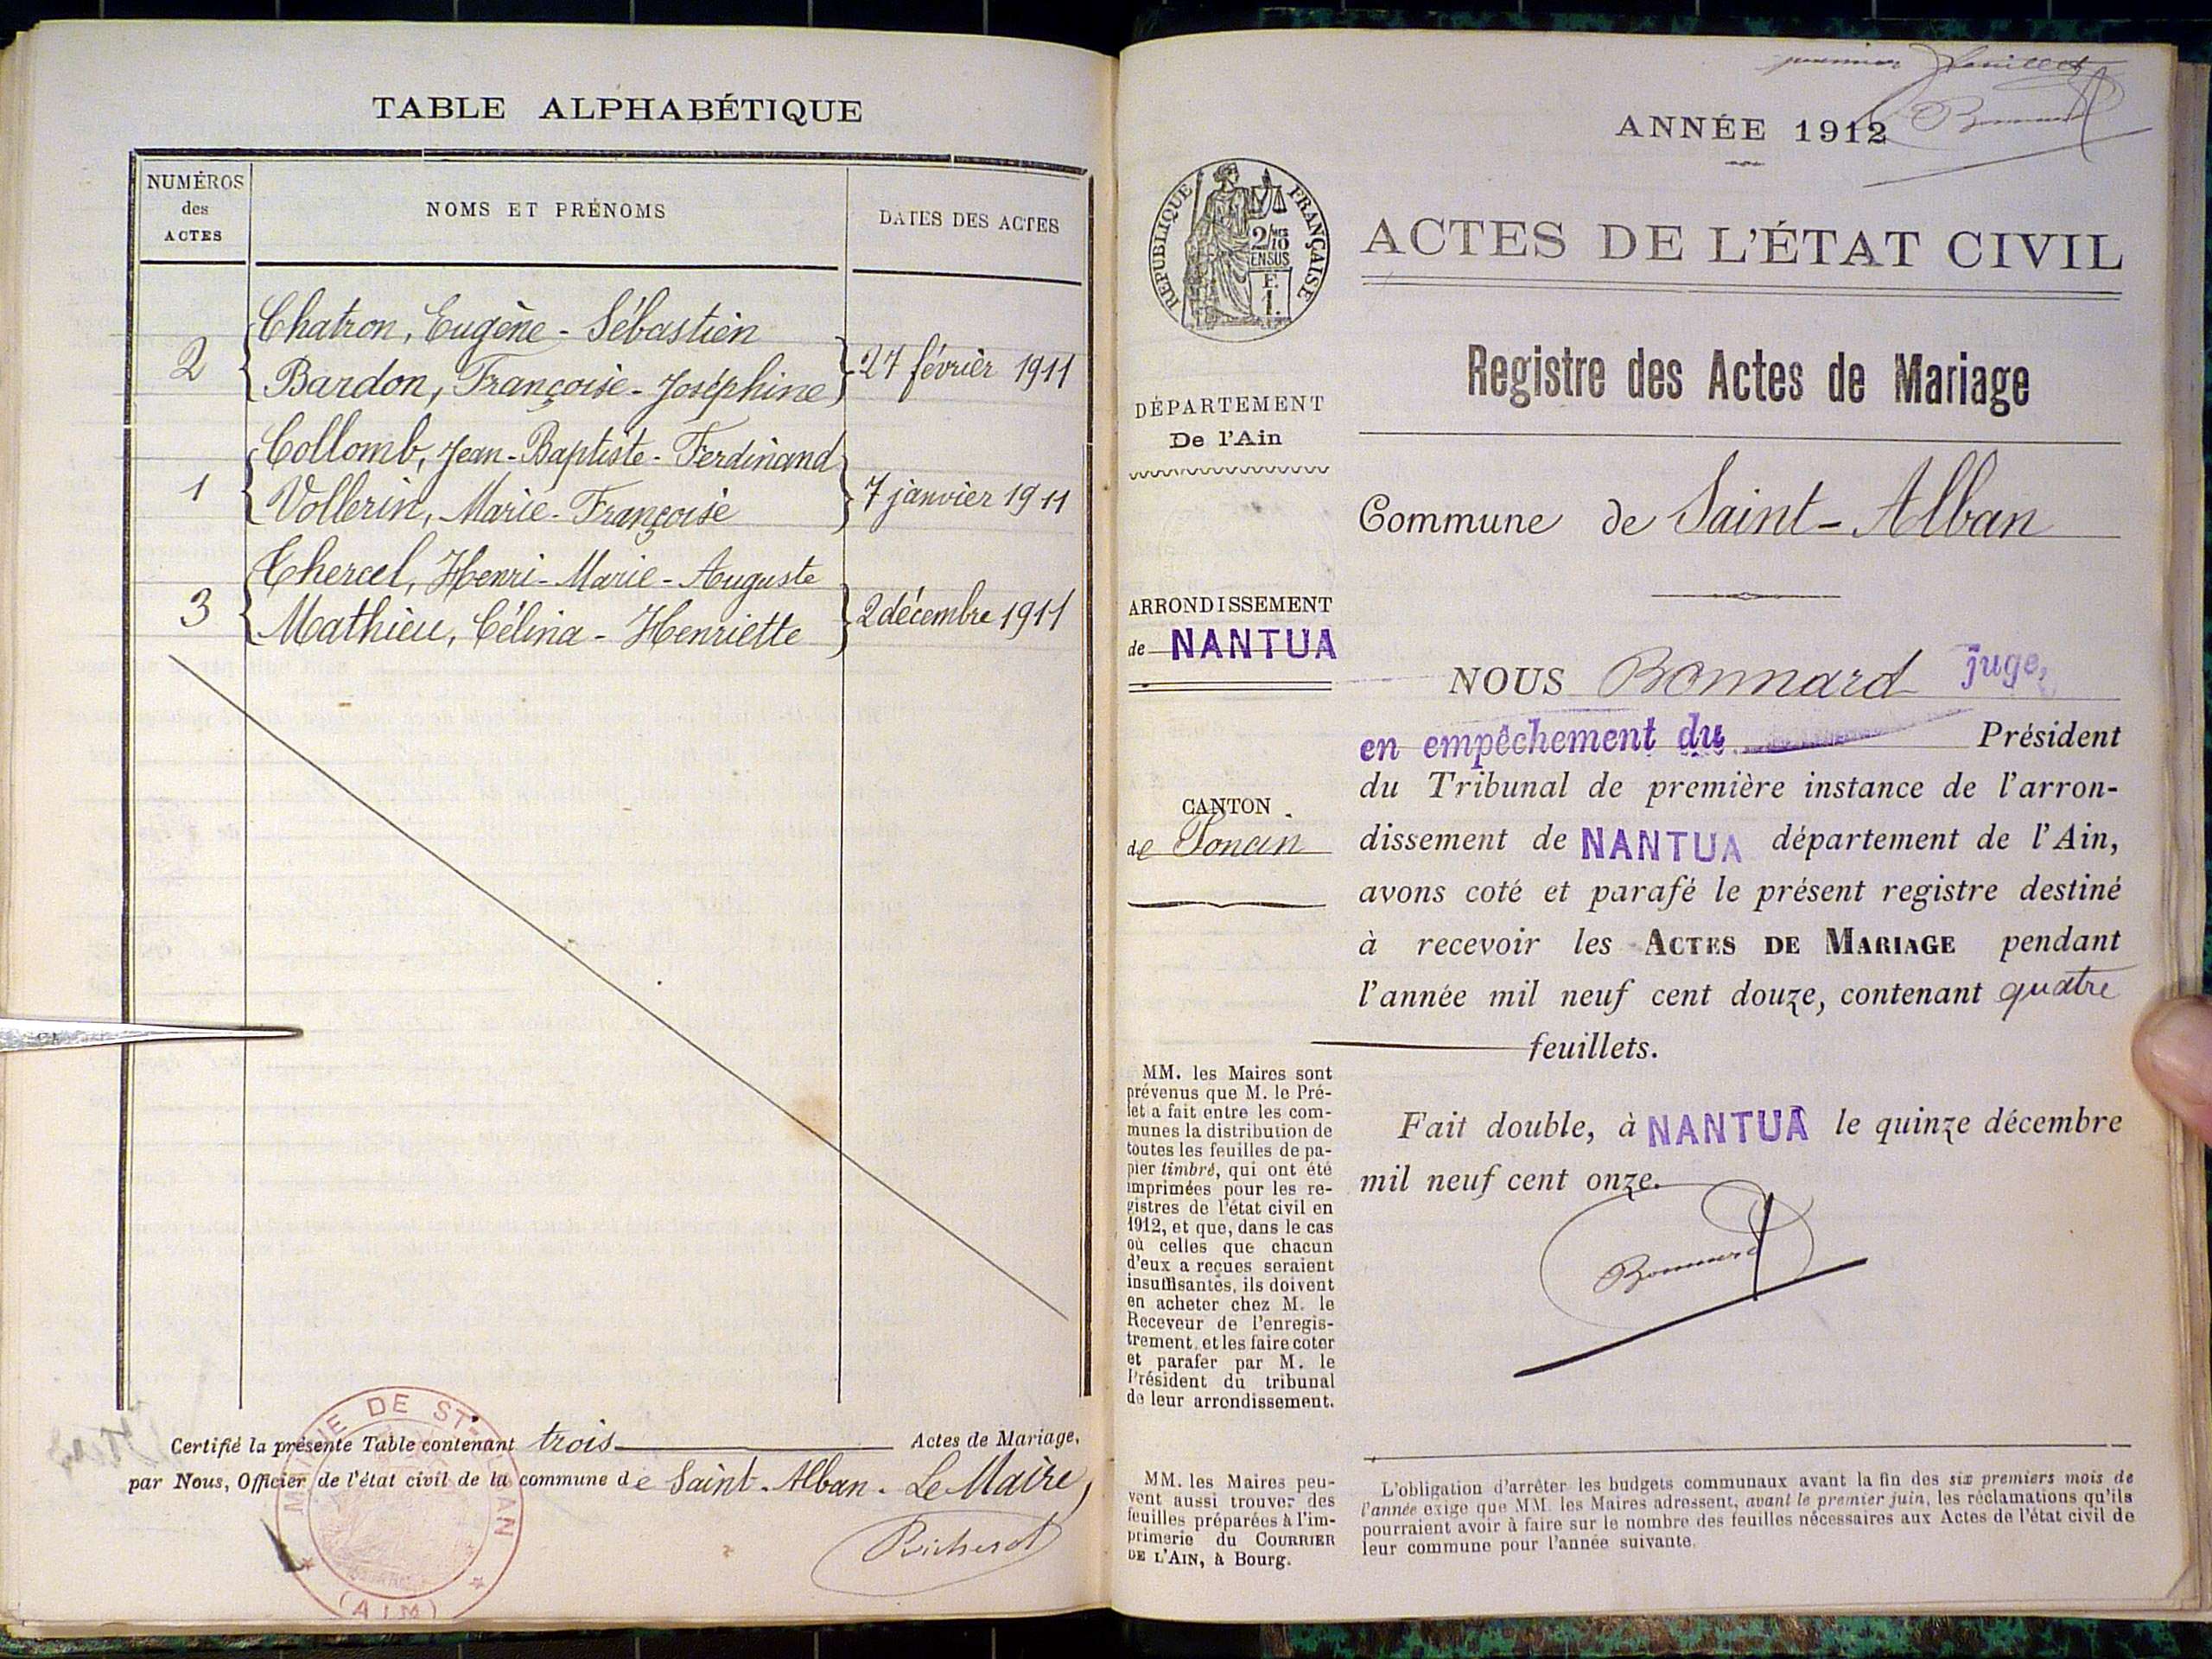 TABLE ALPHABÉTIQUE
NUMÉROS
des
ACTES
NOMS ET PRÉNOMS
DATES DES ACTES
2
Chatron, Eugène - Sébastien
Bardon, Françoise - Joséphine
27 février 1911
1
Collomb, Jean - Baptiste - Ferdinand
Vollerin, Marie - Françoise
7 janvier 1911
3
Chercel, Henri - Marie - Auguste
Mathieu, Célina - Henriette
2 décembre 1911
Certifié la présente Table contenant trois Actes de Mariage,
par Nous, Officier de l'état civil de la commune de Saint-Alban. Le Maire,
(AIN)
premier feuillet
ANNÉE 1912
RÉPUBLIQUE FRANÇAISE
2/10
EN SUS
F.
1.
ACTES DE L'ÉTAT CIVIL
Registre des Actes de Mariage
DÉPARTEMENT
De l'Ain
Commune de Saint-Alban
ARRONDISSEMENT
de NANTUA
CANTON
de Poncin
NOUS Bonnard juge,
en empêchement du Président
du Tribunal de première instance de l'arron-
dissement de NANTUA département de l'Ain,
avons coté et parafé le présent registre destiné
à recevoir les ACTES DE MARIAGE pendant
l'année mil neuf cent douze, contenant quatre
feuillets.
Fait double, à NANTUA le quinze décembre
mil neuf cent onze.
Bonnard
MM. les Maires sont
prévenus que M. le Pré-
fet a fait entre les com-
munes la distribution de
toutes les feuilles de pa-
pier timbré, qui ont été
imprimées pour les re-
gistres de l'état civil en
1912, et que, dans le cas
où celles que chacun
d'eux a reçues seraient
insuffisantes, ils doivent
en acheter chez M. le
Receveur de l'enregis-
trement, et les faire coter
et parafer par M. le
Président du tribunal
de leur arrondissement.
MM. les Maires peu-
vent aussi trouver des
feuilles préparées à l'im-
primerie du COURRIER
DE L'AIN, à Bourg.
L'obligation d'arrêter les budgets communaux avant la fin des six premiers mois de
l'année exige que MM. les Maires adressent, avant le premier juin, les réclamations qu'ils
pourraient avoir à faire sur le nombre des feuilles nécessaires aux Actes de l'état civil de
leur commune pour l'année suivante.